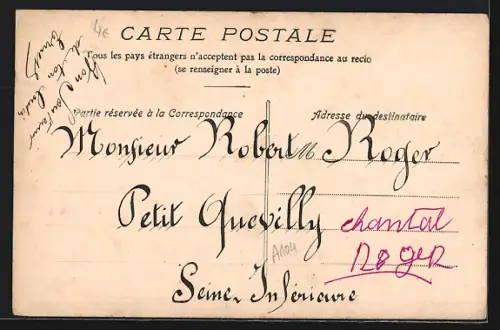 4€
Bon Souvenir
de ton
CARTE POSTALE
Tous les pays étrangers n'acceptent pas la correspondance au recto
(se renseigner à la poste)
Partie réservée à la Correspondance
Adresse du destinataire
Monsieur Robert Roger
Petit Quevilly
chantal
ROGER
A104
Seine Inférieure